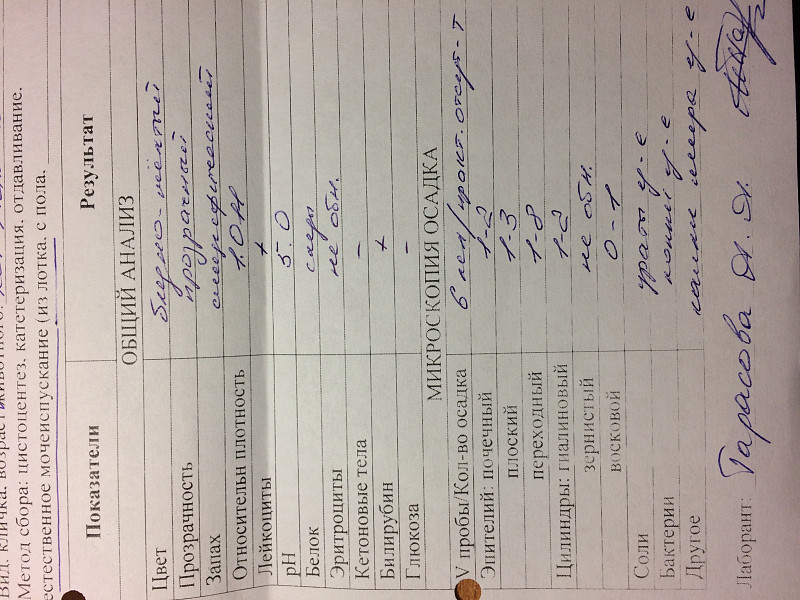 Вид, кличка, возраст животного:
Метод сбора: цистоцентез, катетеризация, отдавливание,
естественное мочеиспускание (из лотка, с пола.
Показатели Результат
ОБЩИЙ АНАЛИЗ
Цвет бледно-жёлтый
Прозрачность прозрачный
Запах специфический
Относительн плотность
Лейкоциты +
pH 5.0
Белок следы
Эритроциты не обн.
Кетоновые тела –
Билирубин +
Глюкоза –
МИКРОСКОПИЯ ОСАДКА
V пробы/Кол-во осадка 6 мл/практ. отсут-т
Эпителий: почечный 1-2
плоский 1-3
переходный 1-8
Цилиндры: гиалиновый 1-2
зернистый не обн.
восковой 0-1
Соли ураты ед-е
Бактерии кокки ед-е
Другое капли жира ед-е
Лаборант: Тарасова